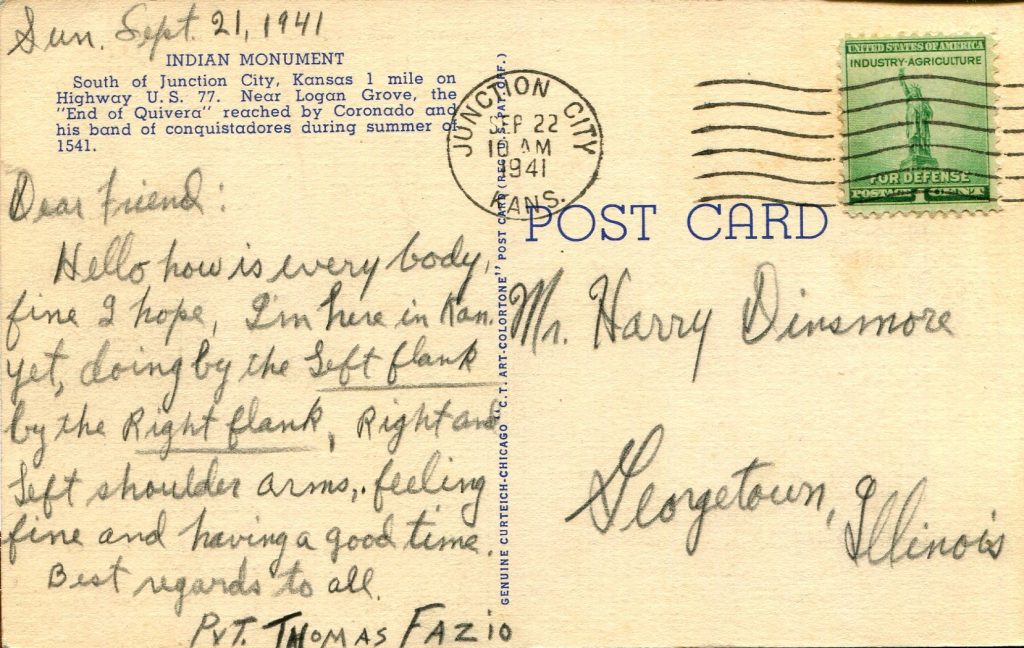 Sun. Sept. 21, 1941
INDIAN MONUMENT
South of Junction City, Kansas 1 mile on
Highway U. S. 77. Near Logan Grove, the
"End of Quivera" reached by Coronado and
his band of conquistadores during summer of
1541.
Dear Friend:
Hello how is every body,
fine I hope, I'm here in Kan.
yet, doing by the Left flank
by the Right flank, Right and
Left shoulder arms, feeling
fine and having a good time.
Best regards to all.
Pvt. THOMAS FAZIO
GENUINE CURTEICH-CHICAGO "C.T. ART-COLORTONE" POST CARD (REG. U.S. PAT. OFF.)
JUNCTION CITY
SEP 22
10 AM
1941
KANS.
UNITED STATES OF AMERICA
INDUSTRY·AGRICULTURE
FOR DEFENSE
POSTAGE 1 CENT
POST CARD
Mr. Harry Dinsmore
Georgetown,
Illinois